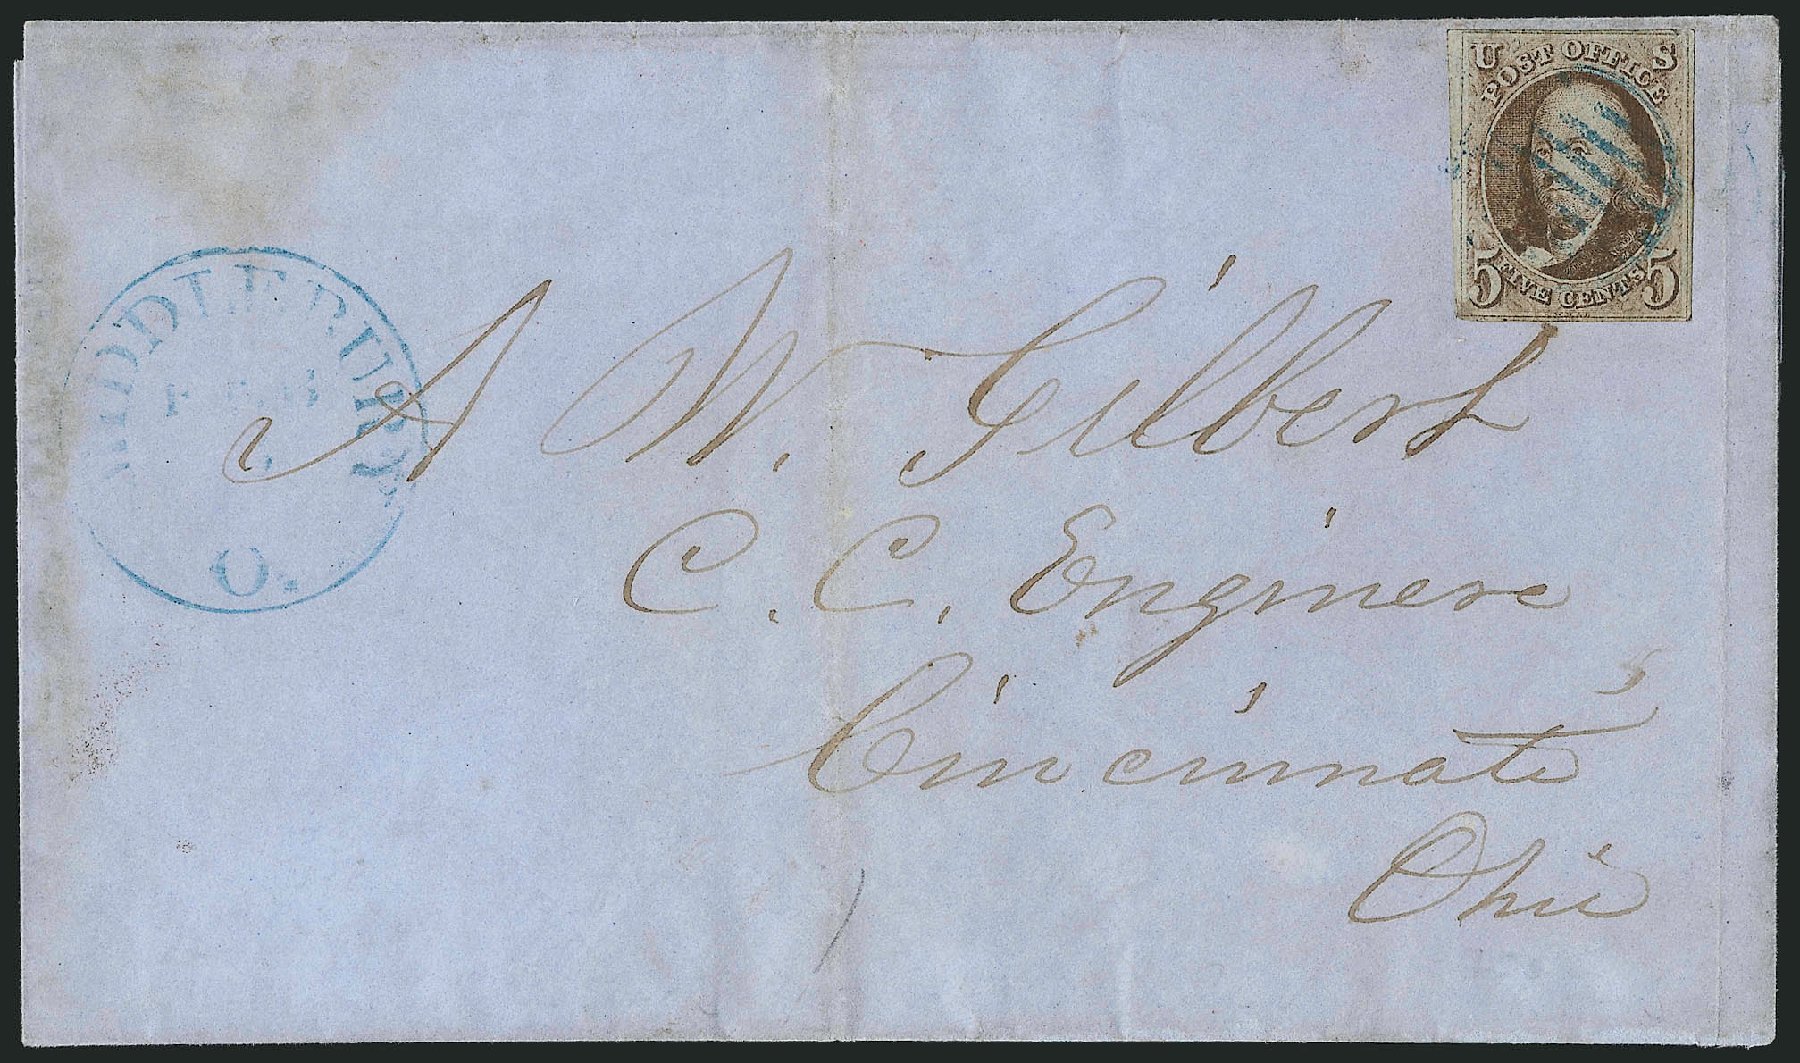 U S
POST OFFICE
5 FIVE CENTS 5
MIDDLEBURY
FEB
O.
A W. Gilbert
C. C. Enginere
Cincinnati
Ohio